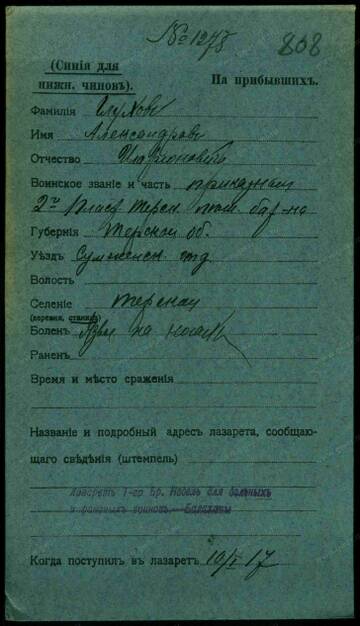 № 1278 808
(Синія для
нижн. чиновъ).
На прибывшихъ.
Фамилія
Имя Александръ
Отчество Иларіоновичъ
Воинское званіе и часть приказный
2й Пласт. Терск. бат-на
Губернія Терская об.
Уѣздъ Сунженск. отд
Волость
Селеніе Терская
(деревня, станица)
Боленъ на ногахъ
Раненъ
Время и мѣсто сраженія
Названіе и подробный адресъ лазарета, сообщаю-
щаго свѣдѣнія (штемпель)
Лазаретъ Т-ва Бр. Нобель для больныхъ
и раненыхъ воиновъ. Балаханы
Когда поступилъ въ лазаретъ 10/I 17